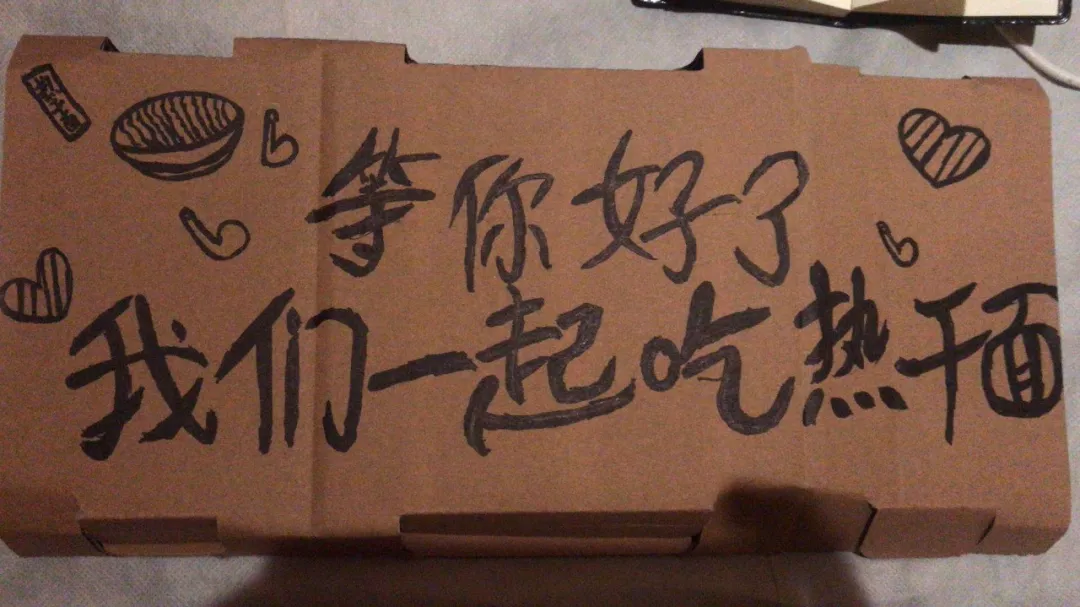 等你好了
我们一起吃热干面